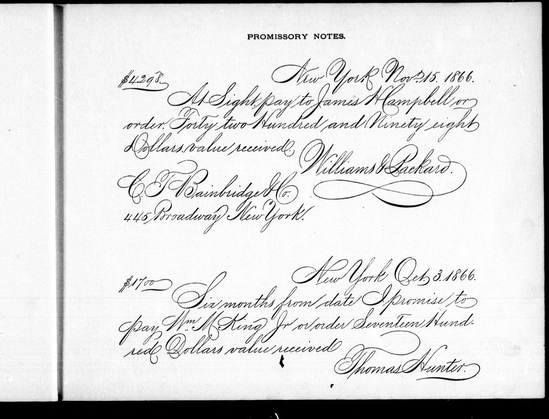 PROMISSORY NOTES.
$4298 New York Nov. 15. 1866.
At Sight, pay to James H Campbell or
order, Forty two Hundred and Ninety eight
Dollars, value received
Williams & Packard.
C. T. Bainbridge & Co.
445, Broadway New York.
$1700 New York Oct 3. 1866.
Six months from date I promise to
pay Wm. M King Jr or order Seventeen Hund-
red Dollars value received
Thomas Hunter.